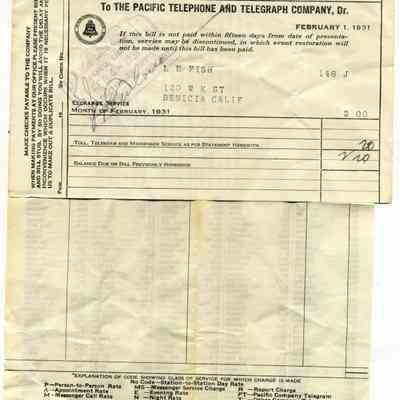 To THE PACIFIC TELEPHONE AND TELEGRAPH COMPANY, Dr.
FEBRUARY 1, 1931
If this bill is not paid within fifteen days from date of presenta-
tion, service may be discontinued, in which event restoration will
not be made until this bill has been paid.
L E FISH 148 J
120 W K ST
BENICIA CALIF
EXCHANGE SERVICE
MONTH OF FEBRUARY, 1931 2 00
TOLL, TELEGRAM AND MESSENGER SERVICE AS PER STATEMENT HEREWITH
BALANCE DUE ON BILL PREVIOUSLY RENDERED
MAKE CHECKS PAYABLE TO THE COMPANY
WHEN MAKING PAYMENTS AT OUR OFFICE PLEASE PRESENT
AND BILL STUB. BY SO DOING YOU WILL AVOID THE DELAY
INCONVENIENCE WHICH OCCURS WHEN IT IS NECESSARY
US TO MAKE OUT A DUPLICATE BILL.
BY CHECK NO.
EXPLANATION OF CODE SHOWING CLASS OF SERVICE FOR WHICH CHARGE IS MADE
No Code—Station-to-Station Day Rate
P—Person-to-Person Rate MS—Messenger Service Charge R—Report Charge
A—Appointment Rate E—Evening Rate PT—Pacific Company Telegram
M—Messenger Call Rate N—Night Rate